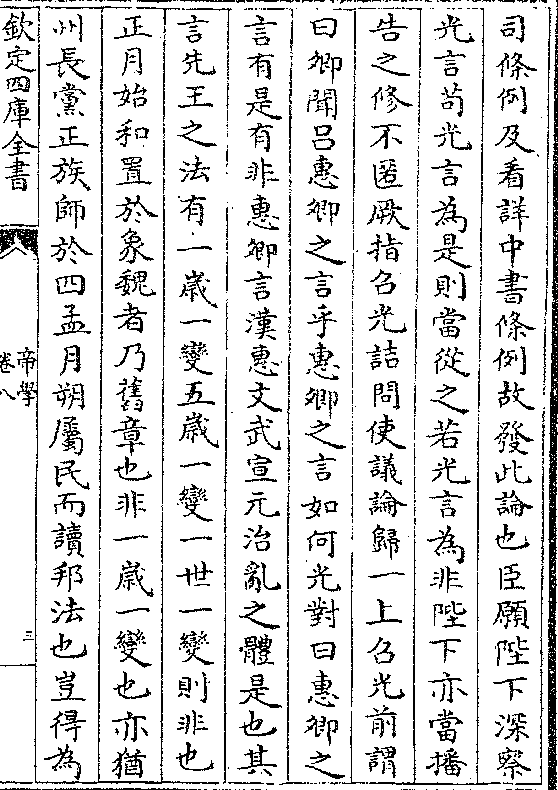 司條例及看詳中書條例故發此論也臣願陛下深察
光言苟光言為是則當從之若光言為非陛下亦當播
告之修不匿厥指召光詰問使議論歸一上召光前謂
曰卿聞呂惠卿之言乎惠卿之言如何光對曰惠卿之
言有是有非惠卿言漢惠文武宣元治亂之體是也其
言先王之法有一歲一變五歲一變一世一變則非也
正月始和置於象魏者乃舊章也非一歲一變也亦猶
州長黨正族師於四孟月朔屬民而讀邦法也豈得為
欽定四庫全書
帝學
卷八
三